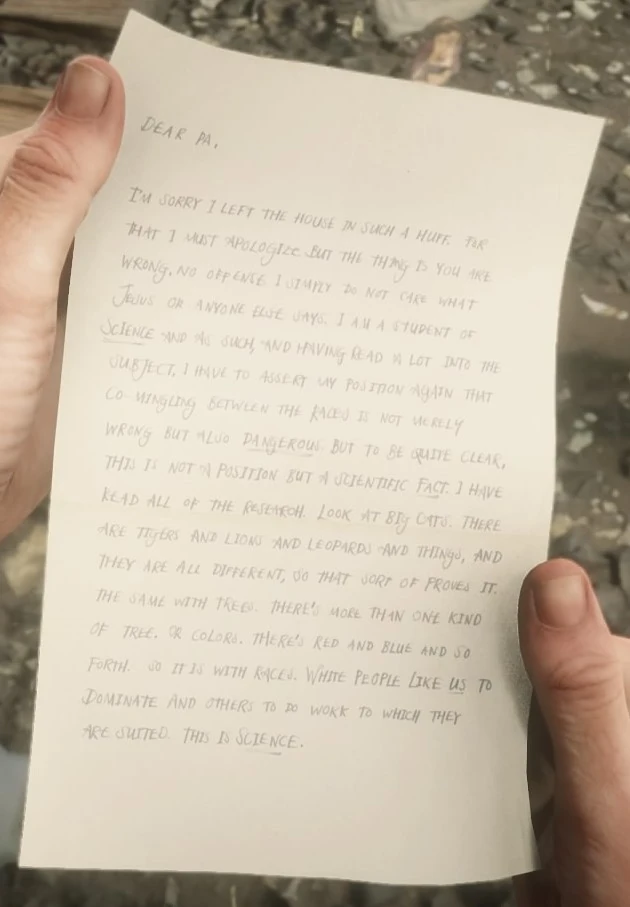 DEAR PA,
I'M SORRY I LEFT THE HOUSE IN SUCH A HUFF. FOR
THAT I MUST APOLOGIZE. BUT THE THING IS YOU ARE
WRONG, NO OFFENSE. I SIMPLY DO NOT CARE WHAT
JESUS OR ANYONE ELSE SAYS. I AM A STUDENT OF
SCIENCE AND AS SUCH, AND HAVING READ A LOT INTO THE
SUBJECT, I HAVE TO ASSERT MY POSITION AGAIN THAT
CO MINGLING BETWEEN THE RACES IS NOT MERELY
WRONG BUT ALSO DANGEROUS. BUT TO BE QUITE CLEAR,
THIS IS NOT A POSITION BUT A SCIENTIFIC FACT. I HAVE
READ ALL OF THE RESEARCH. LOOK AT BIG CATS. THERE
ARE TIGERS AND LIONS AND LEOPARDS AND THINGS, AND
THEY ARE ALL DIFFERENT, SO THAT SORT OF PROVES IT.
THE SAME WITH TREES. THERE'S MORE THAN ONE KIND
OF TREE. OR COLORS. THERE'S RED AND BLUE AND SO
FORTH. SO IT IS WITH RACES. WHITE PEOPLE LIKE US TO
DOMINATE AND OTHERS TO DO WORK TO WHICH THEY
ARE SUITED. THIS IS SCIENCE.